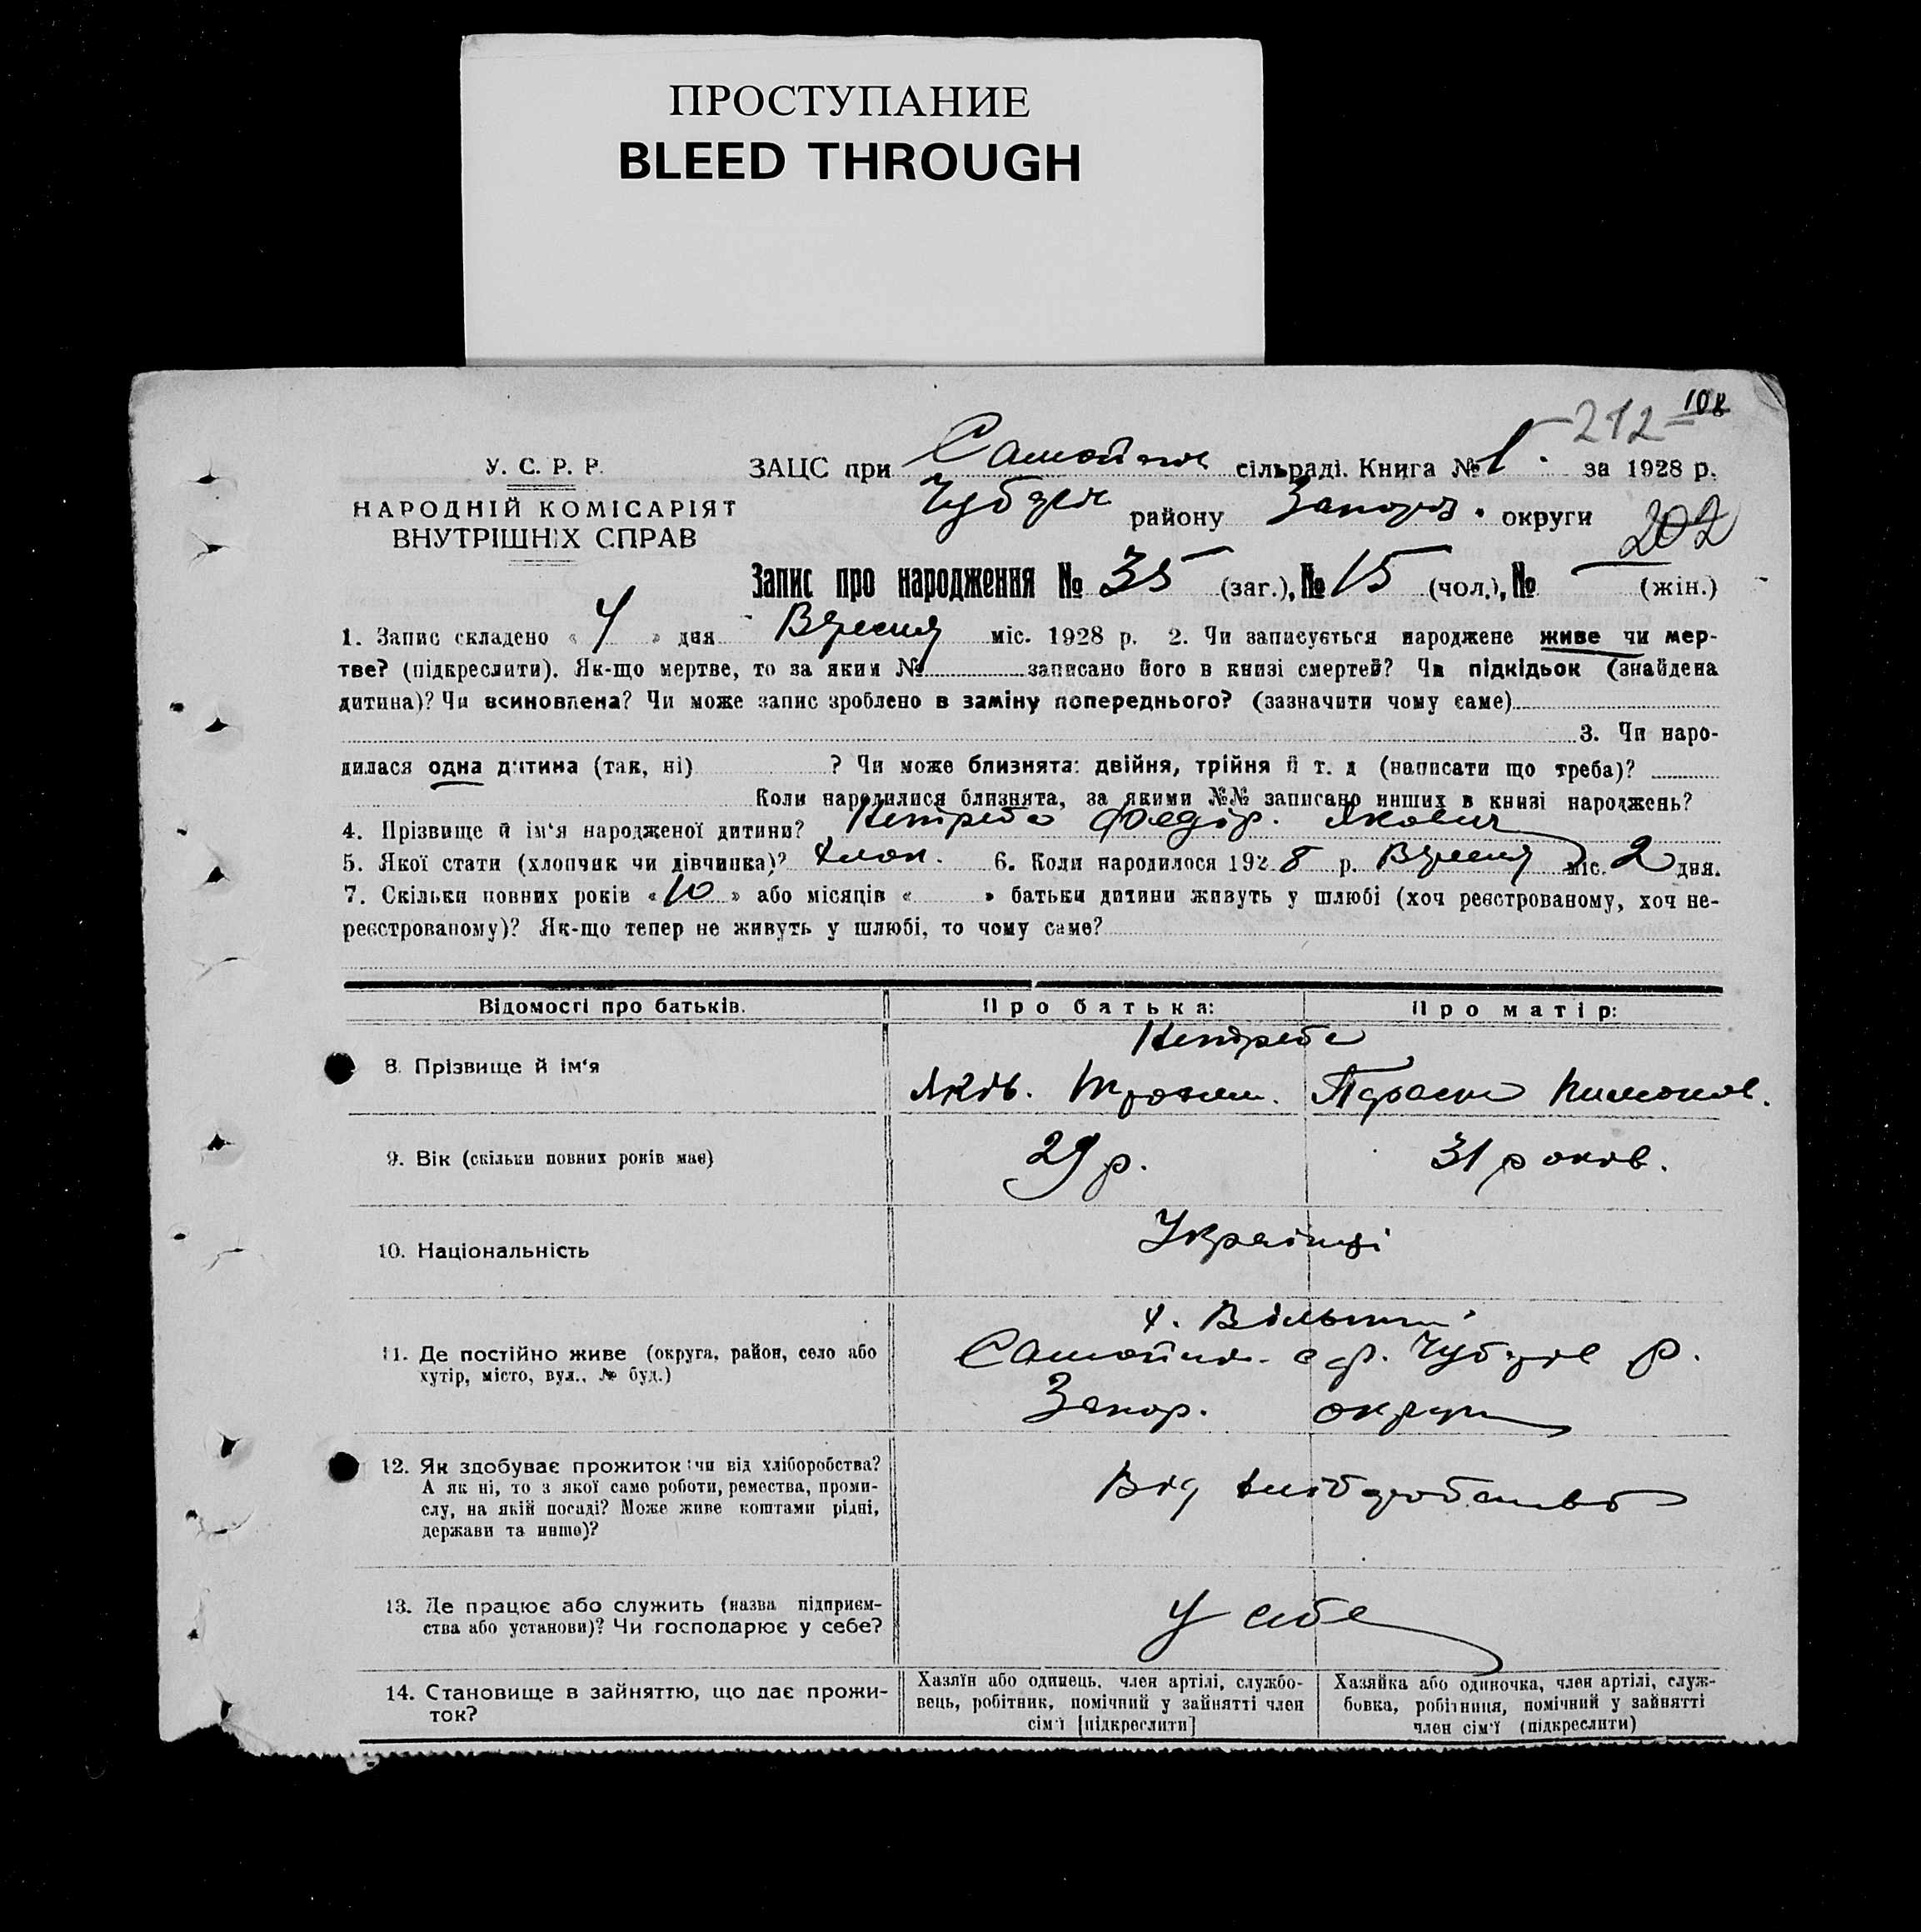 ПРОСТУПАНИЕ
BLEED THROUGH
108
212
У. С. Р. Р.
НАРОДНІЙ КОМІСАРІЯТ
ВНУТРІШНІХ СПРАВ
ЗАЦС при Самойлів сільраді. Книга № 1. за 1928 р.
Чубарів району Запоріз. округи
202
Запис про народження № 35 (заг.), № 15 (чол.), № — (жін.)
1. Запис складено « 4 » дня Вересня міс. 1928 р. 2. Чи записується народжене живе чи мер-
тве? (підкреслити). Як-що мертве, то за яким № записано його в книзі смертей? Чи підкідьок (знайдена
дитина)? Чи всиновлена? Чи може запис зроблено в заміну попереднього? (зазначити чому саме)
3. Чи наро-
дилася одна дитина (так, ні) ? Чи може близнята: двійня, трійня й т. д (написати що треба)?
Коли народилися близнята, за якими №№ записано инших в книзі народжень?
4. Прізвище й ім‘я народженої дитини? Федір. Якович
5. Якої стати (хлопчик чи дівчинка)? хлоп. 6. Коли народилося 1928 р. Вересня міс. 2 дня.
7. Скільки повних років « 10 » або місяців « » батьки дитини живуть у шлюбі (хоч реєстрованому, хоч не-
реєстрованому)? Як-що тепер не живуть у шлюбі, то чому саме?
Відомості про батьків. Про батька: Про матір:
8. Прізвище й ім‘я
Яків. Трохим. Параска Пимонов.
9. Вік (скільки повних років має) 29 р. 31 років.
10. Національність Українці
11. Де постійно живе (округа, район, село або
хутір, місто, вул., № буд.)
х. Вільний
Самойлів. с/р. Чубарів р.
Запор. округи
12. Як здобуває прожиток: чи від хліборобства?
А як ні, то з якої само роботи, ремества, проми-
слу, на якій посаді? Може живе коштами рідні,
держави та инше)?
Від хліборобства
13. Де працює або служить (назва підприєм-
ства або установи)? Чи господарює у себе?
У себе
14. Становище в зайняттю, що дає прожи-
ток?
Хазяїн або одинець, член артілі, службо-
вець, робітник, помічний у зайнятті член
сім‘ї [підкреслити]
Хазяйка або одиночка, член артілі, служ-
бовка, робітниця, помічний у зайнятті
член сім‘ї (підкреслити)